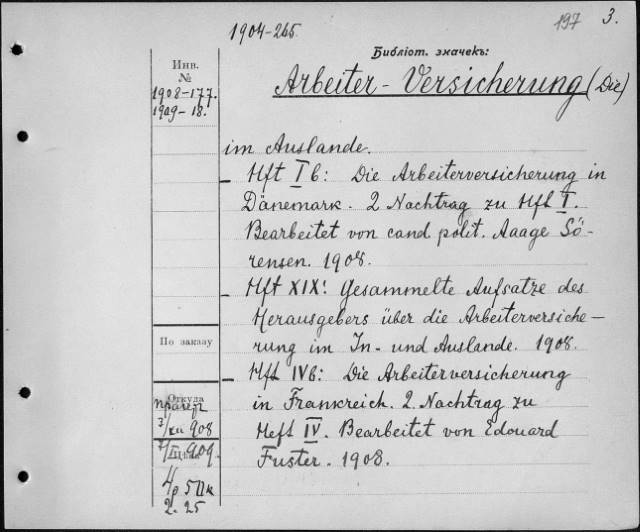 1904-265
197 3.
Библіот. значекъ:
Инв.
№
1908-177.
1909-18.
Arbeiter-Versicherung (Die)
im Auslande.
- Hft Ib: Die Arbeiterversicherung in
Dänemark. 2 Nachtrag zu Hft I.
Bearbeitet von cand. polit. Aaage Sö-
rensen. 1908.
- Hft XIX: Gesammelte Aufsatze des
Herausgebers über die Arbeiterversiche-
rung im In- und Auslande. 1908.
- Hft IVb: Die Arbeiterversicherung
in Frankreich. 2. Nachtrag zu
Heft IV. Bearbeitet von Edouard
Fuster. 1908.
По заказу
Откуда
3/XII 908
7/II 909.
Цѣна
4р 50к
2. 25